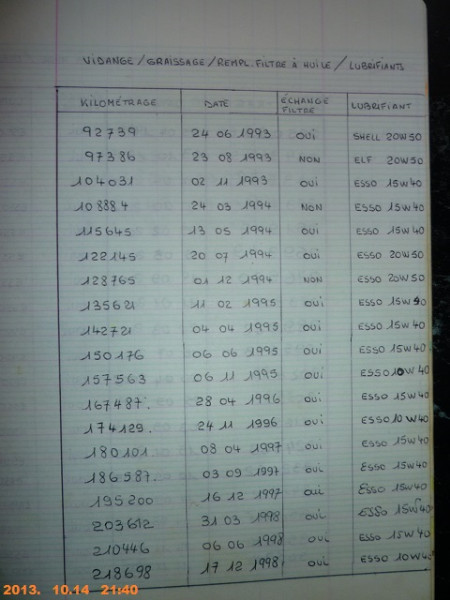 VIDANGE/GRAISSAGE/REMPL.FILTRE À HUILE/LUBRIFIANTS
KILOMÉTRAGE DATE ÉCHANGE FILTRE LUBRIFIANT
92739 24 06 1993 OUI SHELL 20W50
97386 23 08 1993 NON ELF 20W50
104031 02 11 1993 OUI ESSO 15W40
108884 24 03 1994 NON ESSO 15W40
115645 13 05 1994 OUI ESSO 15W40
122145 20 07 1994 OUI ESSO 20W50
128765 01 12 1994 NON ESSO 20W50
135621 11 02 1995 OUI ESSO 15W90
142721 04 04 1995 OUI ESSO 15W40
150176 06 06 1995 OUI ESSO 15W40
157563 06 11 1995 OUI ESSO 10W40
167487. 28 04 1996 OUI ESSO 15W40
174129. 24 11 1996 OUI ESSO 10W40
180101 08 04 1997 OUI ESSO 15W40
186587. 03 09 1997 OUI ESSO 15W40
195200 16 12 1997 OUI ESSO 15W40
203612 31 03 1998 OUI ESSO 15W40
210446 06 06 1998 OUI ESSO 15W40
218698 17 12 1998 OUI ESSO 10W40
2013. 10.14 21:40